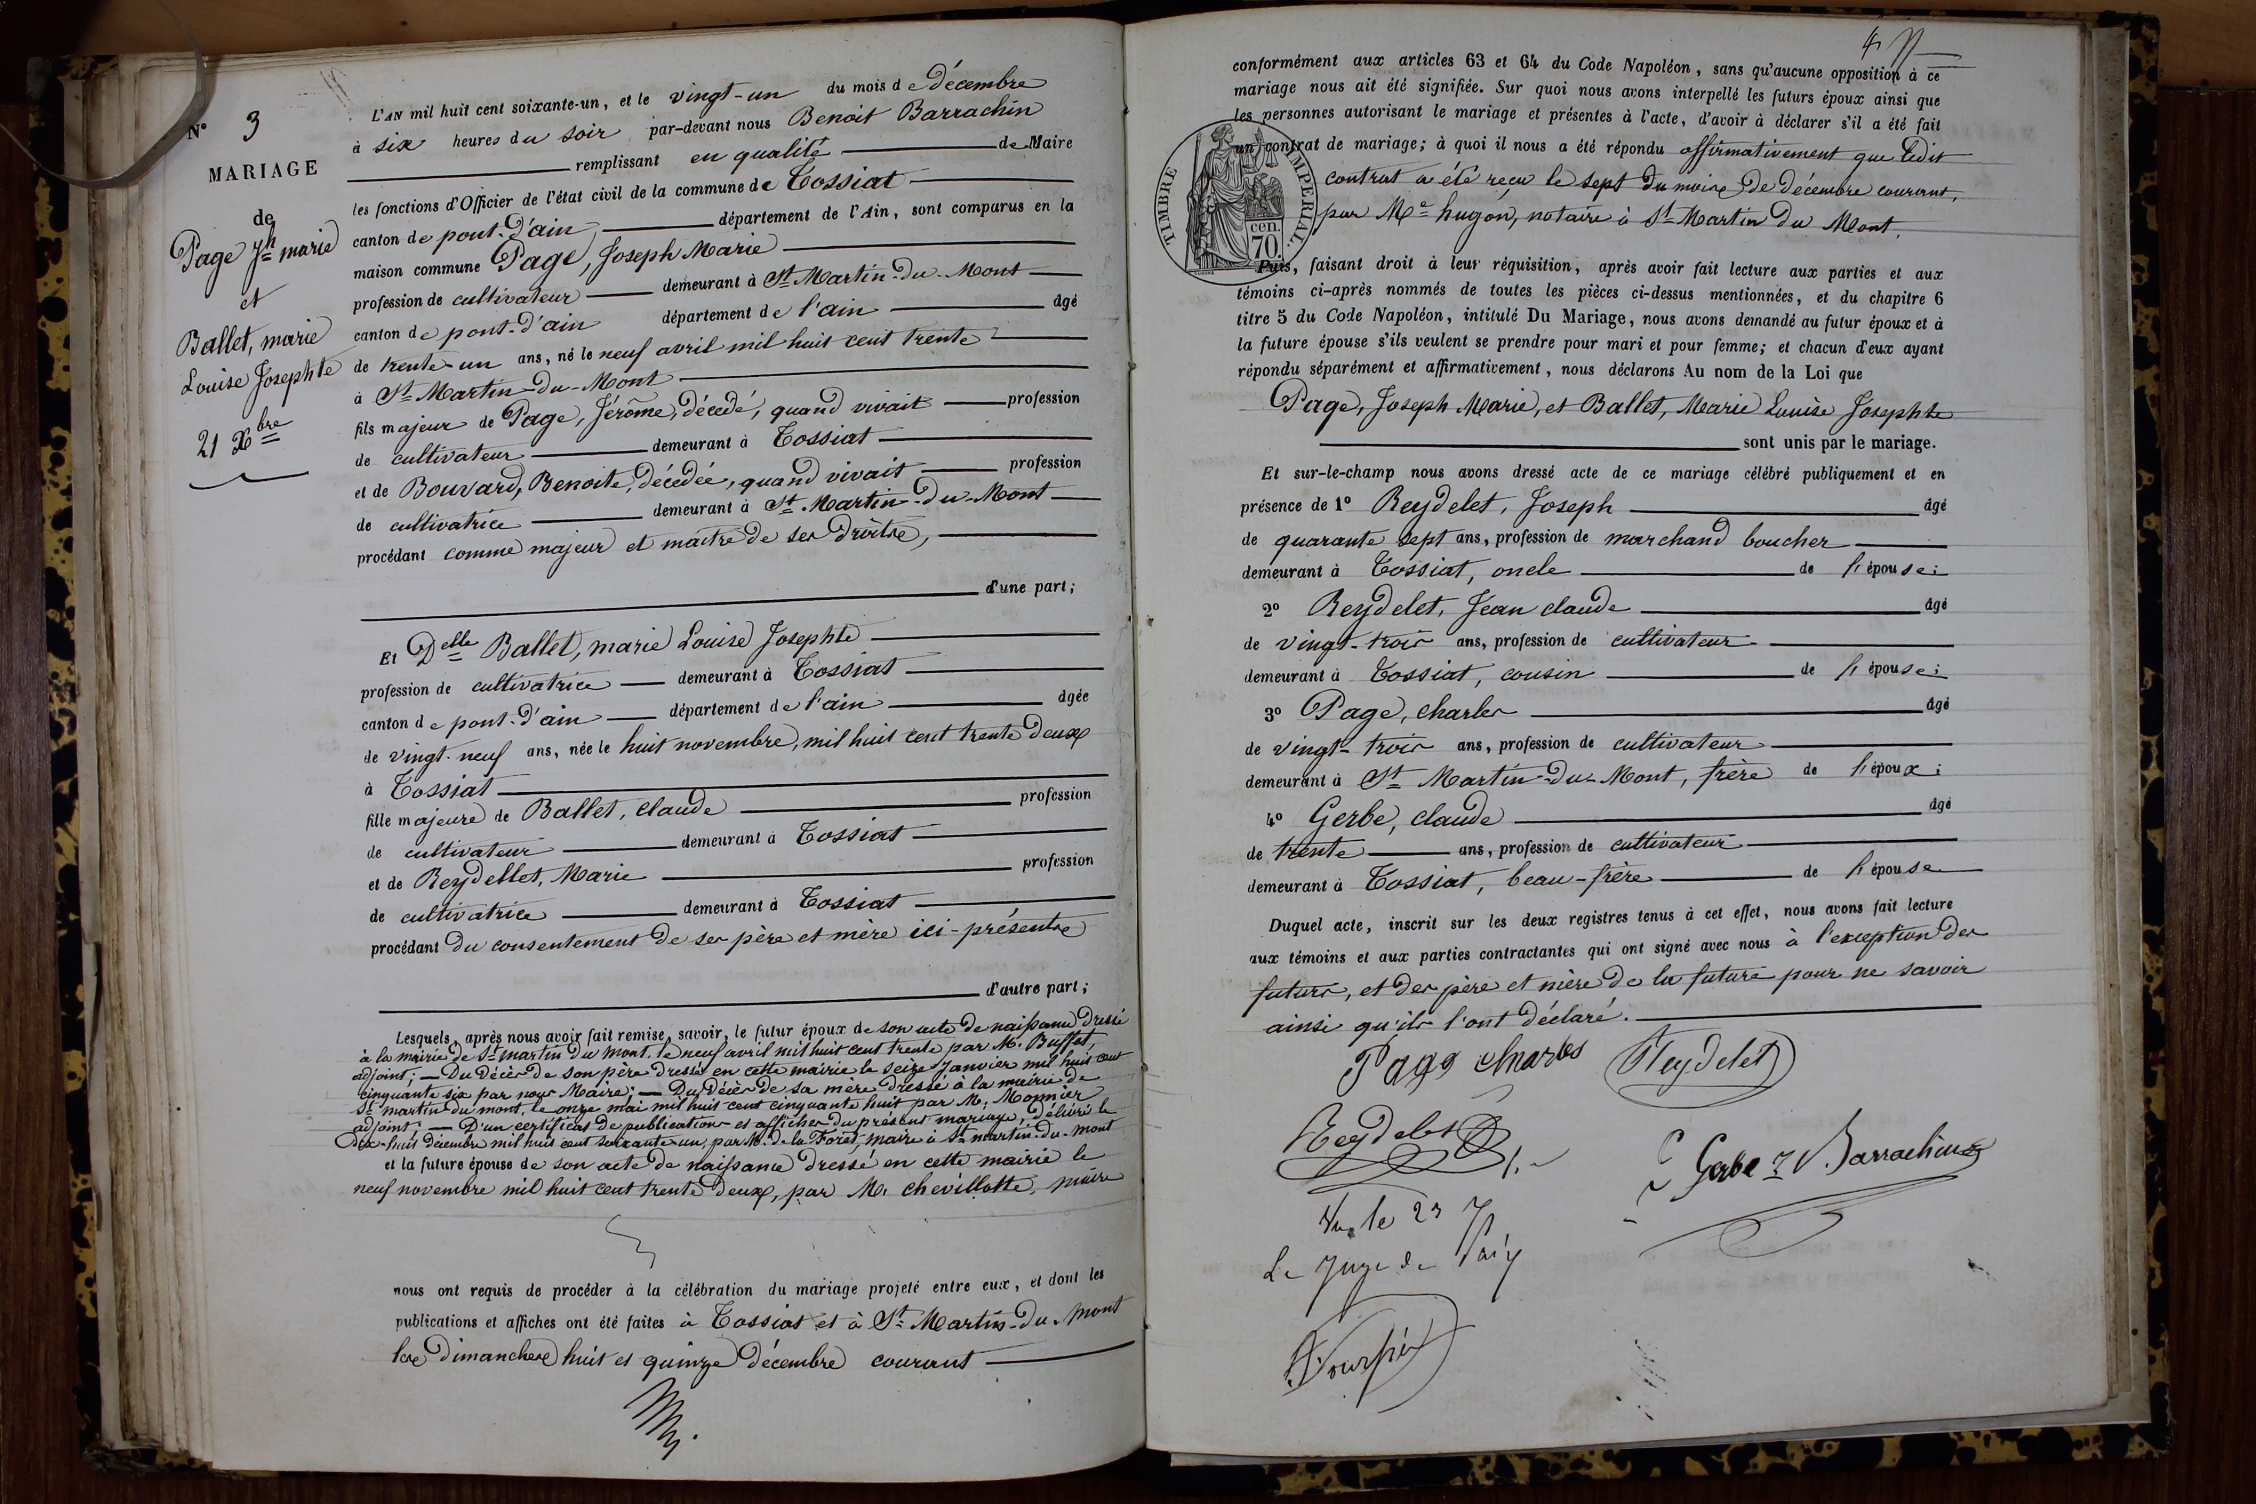 N° 3
MARIAGE
de
Page Jh marie
et
Ballet, marie
Louise Josephte
21 Xbre
L'AN mil huit cent soixante-un, et le vingt-un du mois de décembre
à six heures du soir par-devant nous Benoit Barrachin
remplissant en qualité de Maire
les fonctions d'Officier de l'état civil de la commune de Tossiat
canton de pont-d'ain département de l'Ain, sont comparus en la
maison commune Page, Joseph Marie
profession de cultivateur demeurant à St Martin-du-Mont
canton de pont-d'ain département de l'ain âgé
de trente-un ans, né le neuf avril mil huit cent trente
à St Martin-du-Mont
fils majeur de Page, Jérôme, décedé, quand vivait profession
de cultivateur demeurant à Tossiat
et de Bouvard, Benoite, décédée, quand vivait profession
de cultivatrice demeurant à St Martin-du-Mont
procédant comme majeur et maitre de ses droits,
d'une part;
Et Delle Ballet, marie Louise Josephte
profession de cultivatrice demeurant à Tossiat
canton de pont-d'ain département de l'ain âgée
de vingt-neuf ans, née le huit novembre, mil huit cent trente deux
à Tossiat
fille majeure de Ballet, claude profession
de cultivateur demeurant à Tossiat
et de Reydellet, Marie profession
de cultivatrice demeurant à Tossiat
procédant du consentement de ses père et mère ici-présents
d'autre part;
Lesquels, après nous avoir fait remise, savoir, le futur époux de son acte de naissance dressé
à la mairie de St martin du mont, le neuf avril mil huit cent trente par M. Buffet,
adjoint; — Du décès de son père dressé en cette mairie le seize Janvier mil huit cent
cinquante six par nous Maire; — Du décès de sa mère dressé à la mairie de
St martin du mont, le onze mai mil huit cent cinquante huit par M. Monnier
adjoint; — D'un certificat de publications et affiches du présent mariage, délivré le
dix-huit décembre mil huit cent soixante un, par M. de la Forêt, maire à St martin-du-mont
et la future épouse de son acte de naissance dressé en cette mairie le
neuf novembre mil huit cent trente deux, par M. Chevillotte, maire
nous ont requis de procéder à la célébration du mariage projeté entre eux, et dont les
publications et affiches ont été faites à Tossiat et à St Martin-du-Mont
les Dimanches huit et quinze décembre courant
conformément aux articles 63 et 64 du Code Napoléon, sans qu'aucune opposition à ce
mariage nous ait été signifiée. Sur quoi nous avons interpellé les futurs époux ainsi que
les personnes autorisant le mariage et présentes à l'acte, d'avoir à déclarer s'il a été fait
un contrat de mariage; à quoi il nous a été répondu affirmativement que ledit
contrat a été reçu le sept du mois de décembre courant,
par Me hugon, notaire à St Martin du Mont.
TIMBRE IMPERIAL.
cen.
70.
Puis, faisant droit à leur réquisition, après avoir fait lecture aux parties et aux
témoins ci-après nommés de toutes les pièces ci-dessus mentionnées, et du chapitre 6
titre 5 du Code Napoléon, intitulé Du Mariage, nous avons demandé au futur époux et à
la future épouse s'ils veulent se prendre pour mari et pour femme; et chacun d'eux ayant
répondu séparément et affirmativement, nous déclarons Au nom de la Loi que
Page, Joseph Marie, et Ballet, Marie Louise Josephte
sont unis par le mariage.
Et sur-le-champ nous avons dressé acte de ce mariage célébré publiquement et en
présence de 1° Reydelet, Joseph âgé
de quarante sept ans, profession de marchand boucher
demeurant à Tossiat, oncle de l'épouse;
2° Reydelet, Jean claude âgé
de vingt-trois ans, profession de cultivateur
demeurant à Tossiat, cousin de l'épouse;
3° Page, charles âgé
de vingt-trois ans, profession de cultivateur
demeurant à St Martin-du-Mont, frère de l'époux;
4° Gerbe, claude âgé
de trente ans, profession de cultivateur
demeurant à Tossiat, beau-frère de l'épouse
Duquel acte, inscrit sur les deux registres tenus à cet effet, nous avons fait lecture
aux témoins et aux parties contractantes qui ont signé avec nous à l'exception des
futurs, et des père et mère de la future pour ne savoir
ainsi qu'ils l'ont déclaré.
Page charles Reydelet
Reydelet
Gerbe Barrachin
Vu le 23
Le Juge de Paix